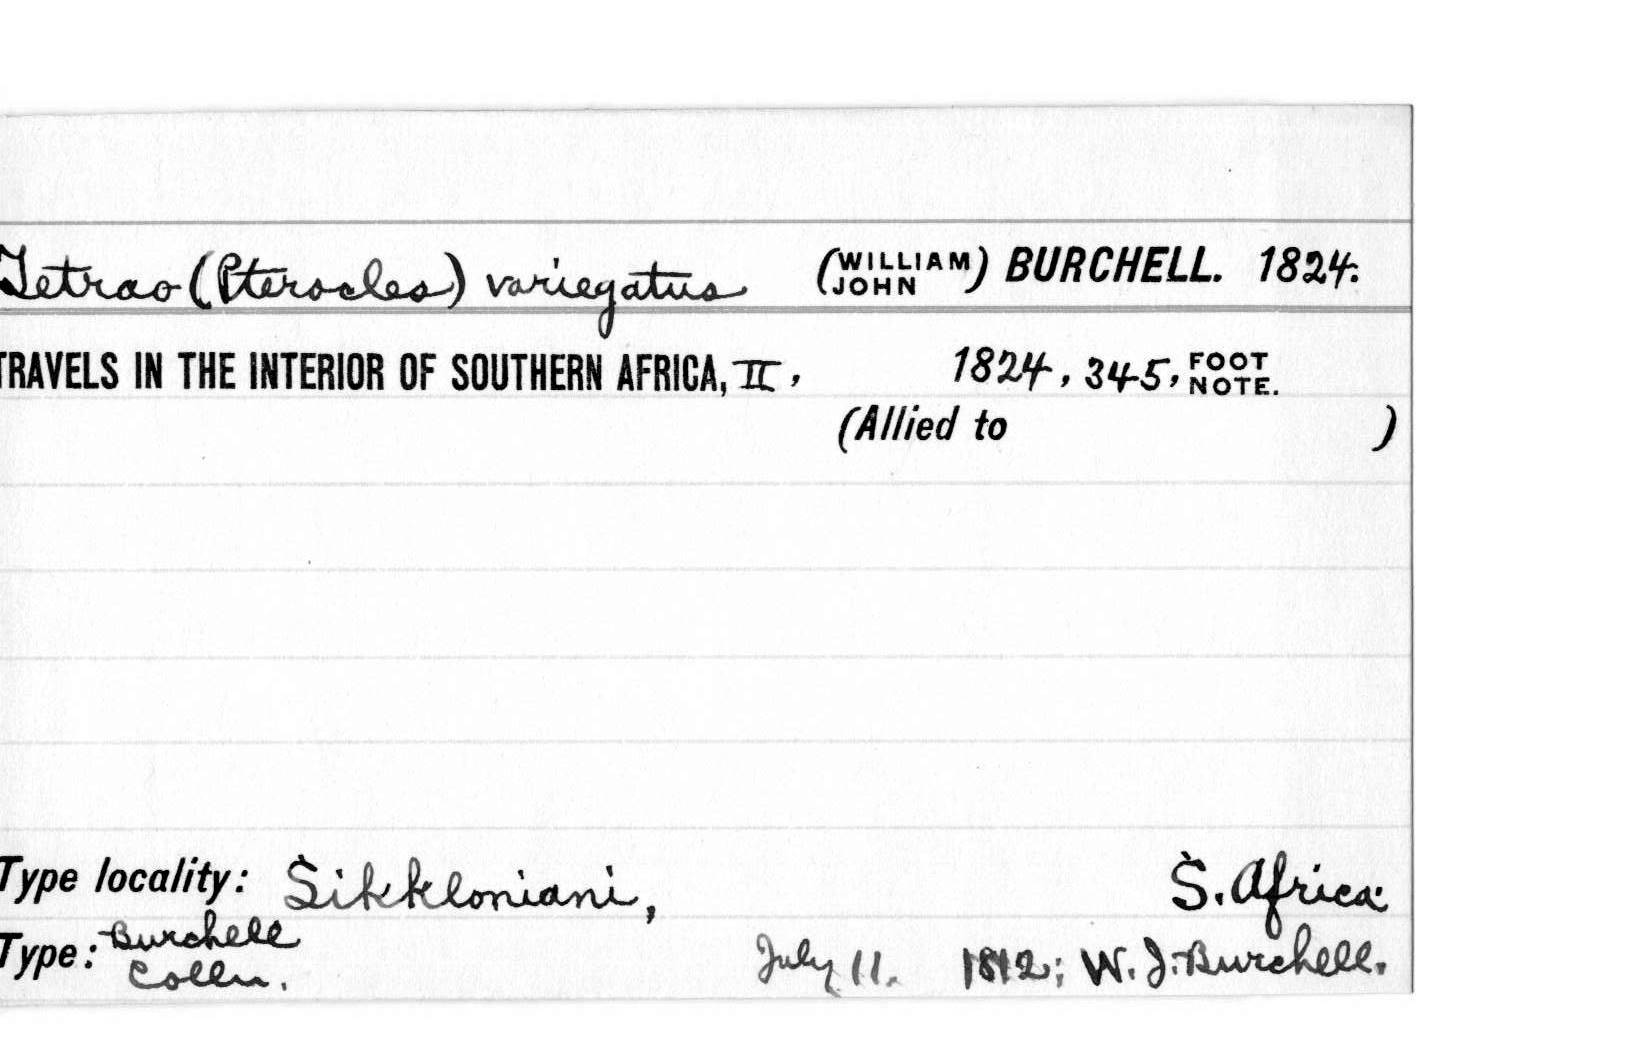 Tetrao (Pterocles) variegatus (WILLIAM JOHN) BURCHELL. 1824.
TRAVELS IN THE INTERIOR OF SOUTHERN AFRICA, II, 1824, 345, FOOT NOTE.
(Allied to )
Type locality: Sikkloniani, S. Africa.
Type: Burchell Colln. July 11. 1812; W. J. Burchell.